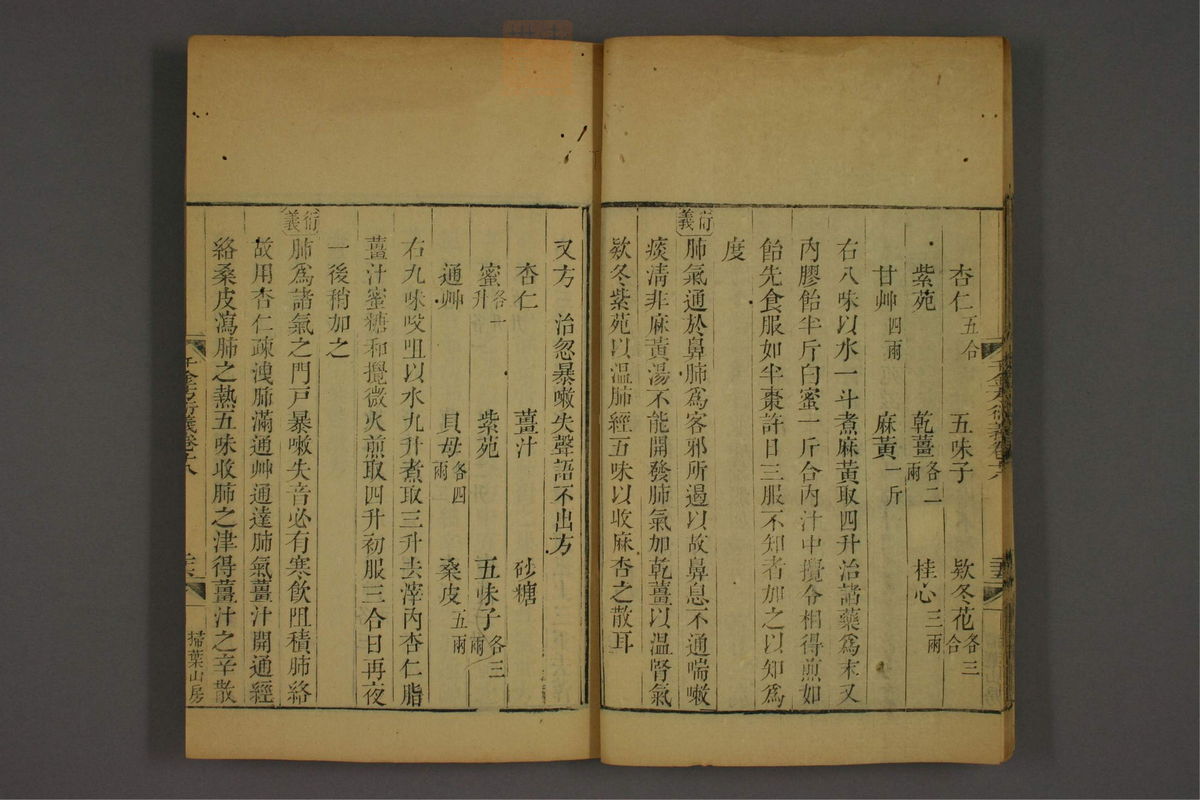 杏仁五合　五味子　欵冬花各三合
紫苑　乾薑各二兩　桂心三兩
甘艸四兩　麻黃一斤
右八味以水一斗煮麻黃取四升治諸藥爲末又
內膠飴半斤白蜜一斤合內汁中攪令相得煎如
飴先食服如半棗許日三服不知者加之以知爲
度
衍義
肺氣通於鼻肺爲客邪所遏以故鼻息不通喘嗽
痰淸非麻黃湯不能開發肺氣加乾薑以溫腎氣
欵冬紫苑以溫肺經五味以收麻杏之散耳
又方　治忽暴嗽失聲語不出方
杏仁　薑汁　砂糖
蜜各一升　紫苑　五味子各三兩
通艸　貝母各四兩　桑皮五兩
右九味㕮咀以水九升煮取三升去滓內杏仁脂
薑汁蜜糖和攪微火煎取四升初服三合日再夜
一後稍加之
衍義
肺爲諸氣之門戸暴嗽失音必有寒飮阻積肺絡
故用杏仁疎洩肺滿通艸通達肺氣薑汁開通經
絡桑皮瀉肺之熱五味收肺之津得薑汁之辛散
千金方衍義卷十八
掃葉山房